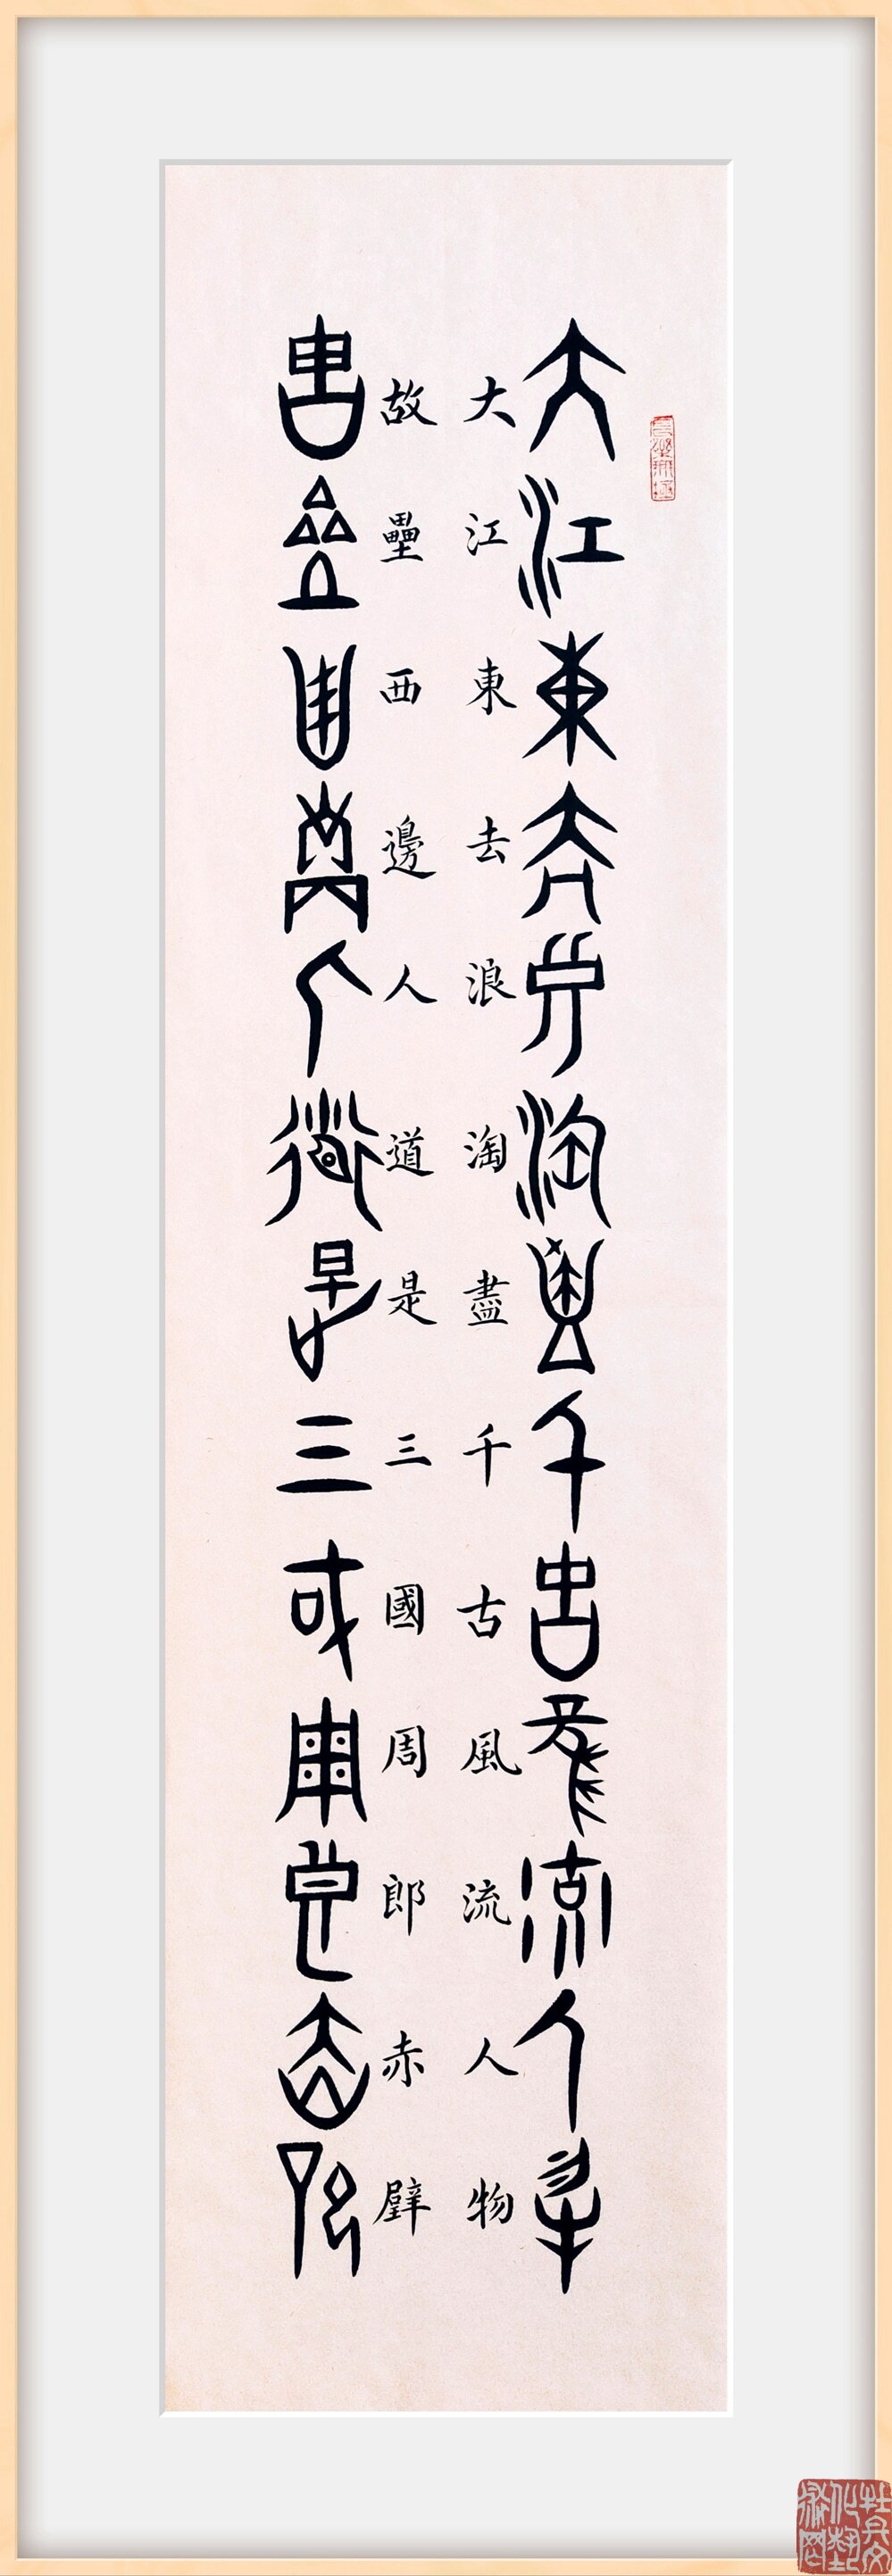 大江東去浪淘盡千古風流人物
大江東去浪淘盡千古風流人物
故壘西邊人道是三國周郎赤壁
故壘西邊人道是三國周郎赤壁